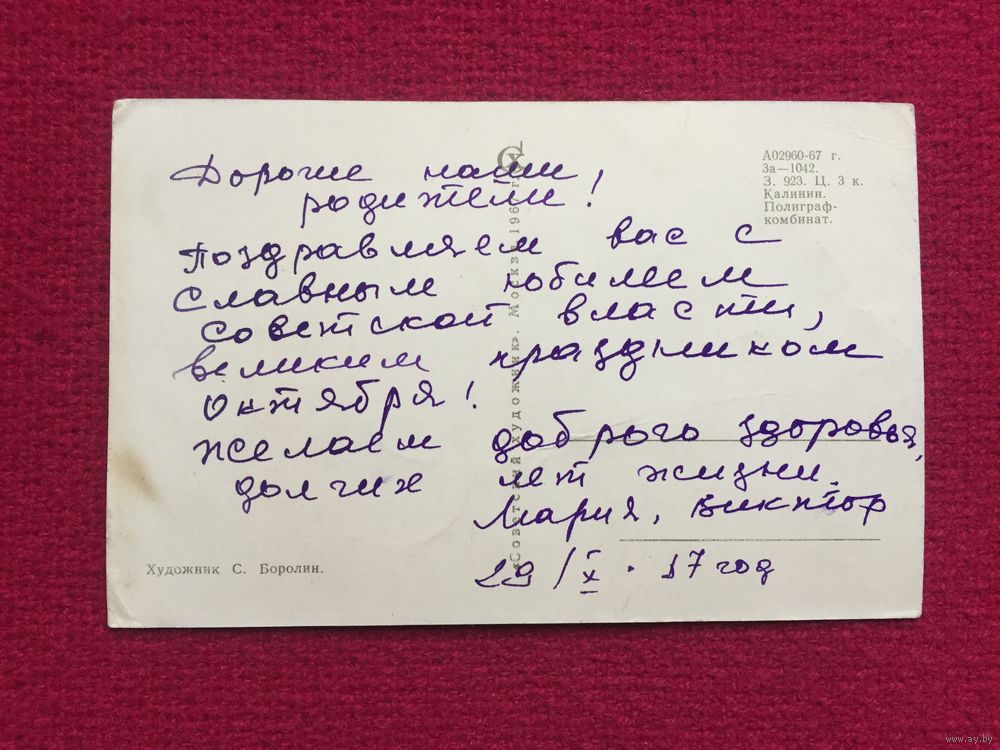 Дорогие наши
родители!
Поздравляем вас с
славным юбилеем
советской власти,
великим праздником
Октября!
Желаем доброго здоровья,
долгих лет жизни.
Мария, Виктор
29/X. 17 год
А02960-67 г.
За—1042.
З. 923. Ц. 3 к.
Калинин.
Полиграф-
комбинат.
«Советский художник». Москва 196
Художник С. Боролин.
www.ay.by